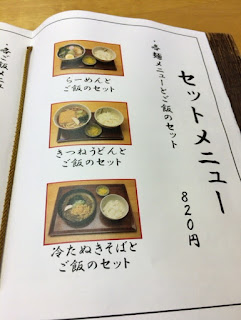 セットメニュー
・各麺メニューとご飯のセット
820円
らーめんと
ご飯のセット
きつねうどんと
ご飯のセット
冷たぬきそばと
ご飯のセット
・各ご飯メニ